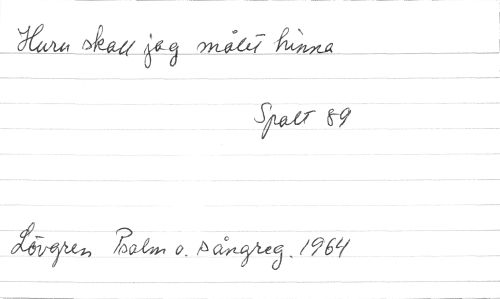 Huru skall jag målet hinna
Spalt 89
Lövgren Psalm o. sångreg. 1964